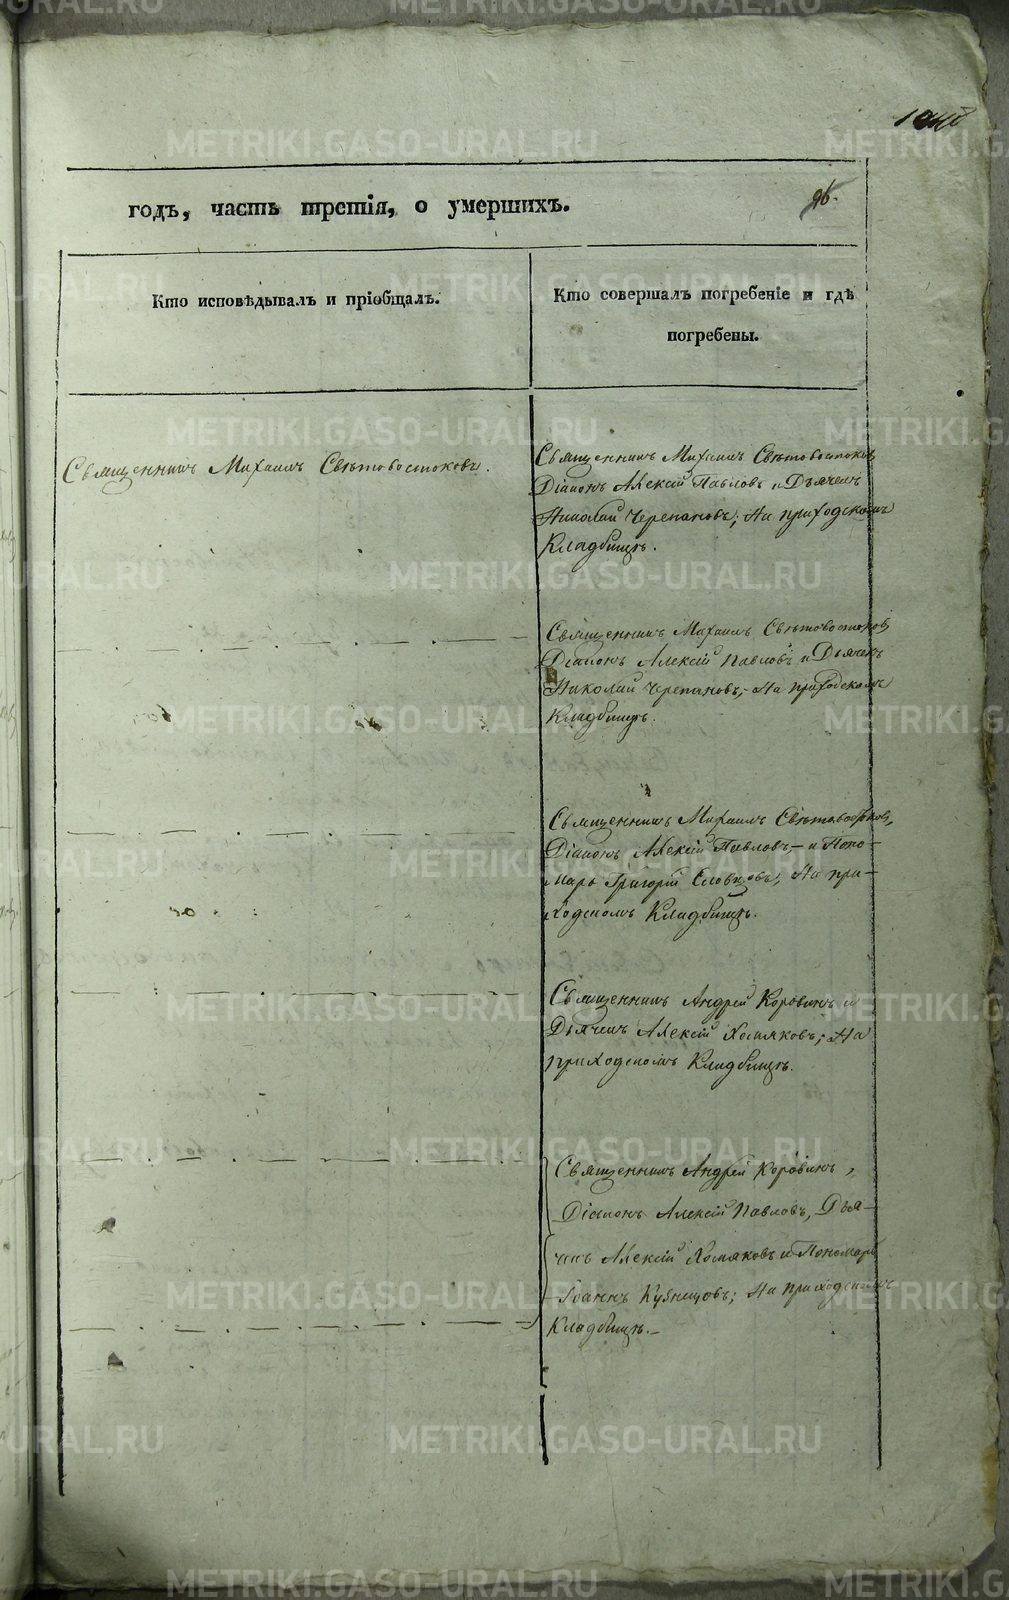 годъ, часть третія, о умершихъ.
96.
Кто исповѣдывалъ и пріобщалъ.
Кто совершалъ погребеніе и гдѣ
погребены.
Священникъ Михаилъ Свѣтовостоковъ.
Священникъ Михаилъ Свѣтовостоковъ
Діаконъ Алексій Павловъ и Дьячекъ
Николай Черепановъ; На приходскомъ
Кладбищѣ.
Священникъ Михаилъ Свѣтовостоковъ
Діаконъ Алексій Павловъ и Дьячекъ
Николай Черепановъ; На приходскомъ
Кладбищѣ.
Священникъ Михаилъ Свѣтовостоковъ,
Діаконъ Алексій Павловъ – и Поно-
марь Григорій Словцовъ; На при-
ходскомъ Кладбищѣ.
Священникъ Андрей Коровинъ и
Дьячекъ Алексій Хомяковъ; На
приходскомъ Кладбищѣ.
Священникъ Андрей Коровинъ,
Діаконъ Алексій Павловъ, Дья-
чекъ Алексій Хомяковъ и Пономарь
Іоаннъ Кузнецовъ; На приходскомъ
Кладбищѣ. –
METRIKI.GASO-URAL.RU